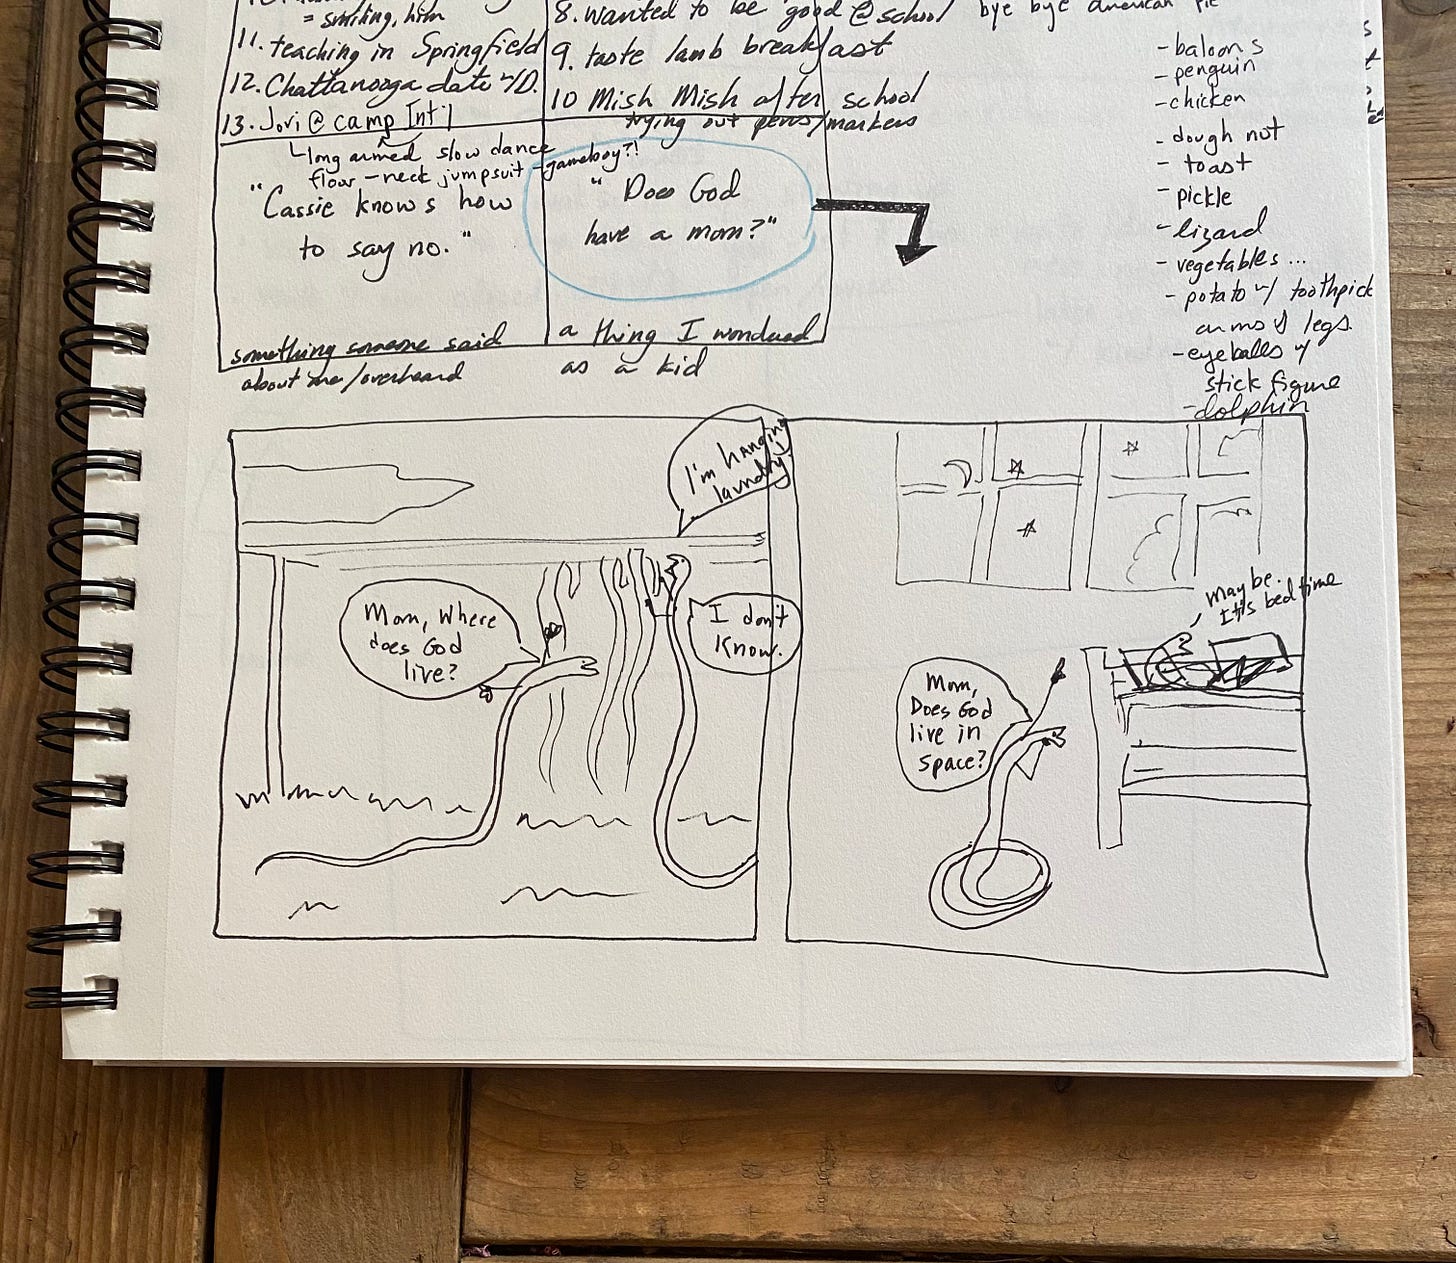 = smiling, him
11. teaching in Springfield
12. Chattanooga date w/D.
13. Jori @ camp Int'l
long armed slow dance
floor - neck jumpsuit - gameboy?!
"Cassie knows how
to say no."
something someone said
about me/overheard
8. wanted to be good @ school
9. taste lamb breakfast
10 Mish Mish after school
trying out pens/markers
"Does God
have a mom?"
a thing I wondered
as a kid
bye bye american pie
- baloons
- penguin
- chicken
- dough nut
- toast
- pickle
- lizard
- vegetables...
- potato w/ toothpick
arms & legs.
- eyeballs w/
stick figure
- dolphin
I'm hanging
laundry.
Mom, Where
does God
live?
I don't
know.
Mom,
Does God
live in
space?
maybe.
It's bedtime